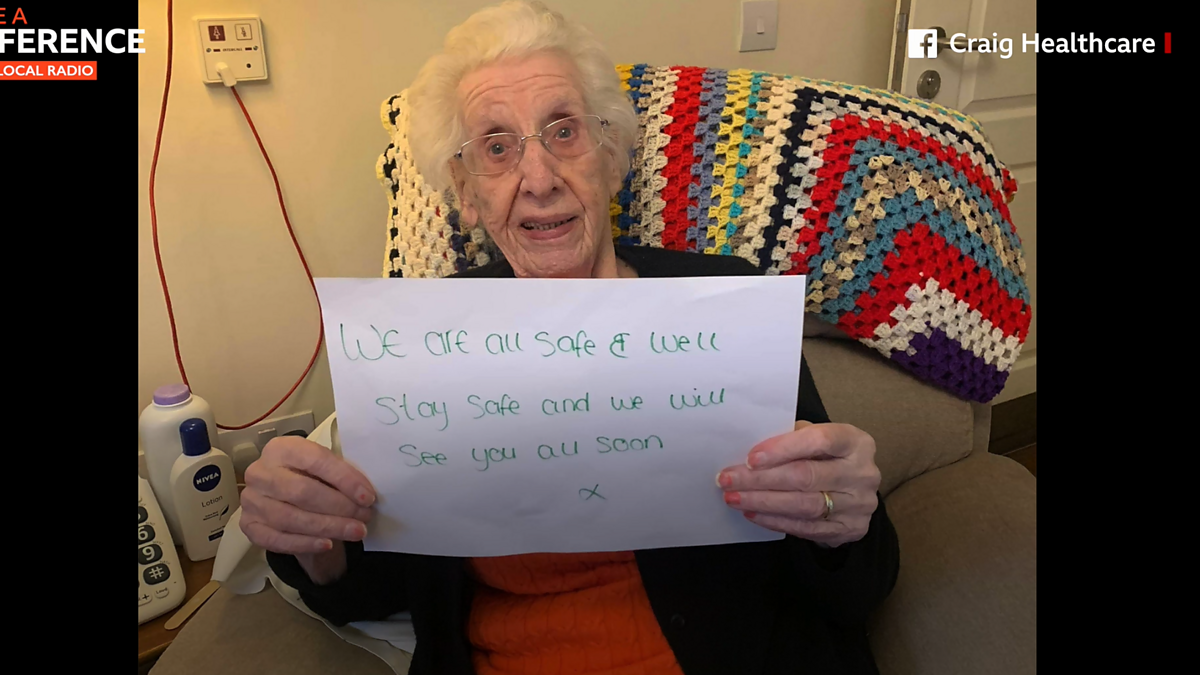 E A
FERENCE
LOCAL RADIO
Craig Healthcare
We are all safe & well
Stay safe and we will
See you all soon
x
NIVEA
Lotion
6
9
#